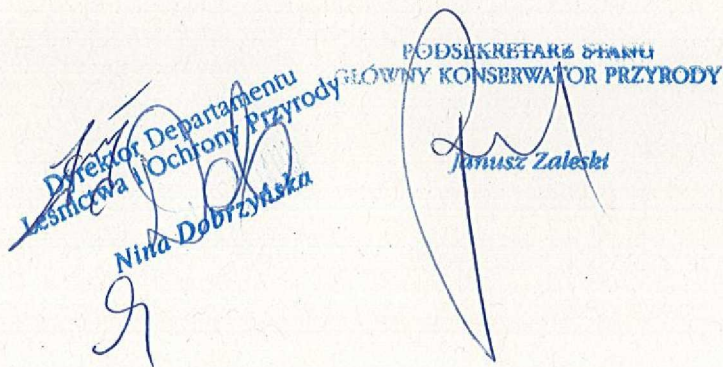 Dyrektor Departamentu
Leśnictwa i Ochrony Przyrody
Nina Dobrzyńska
PODSEKRETARZ STANU
GŁÓWNY KONSERWATOR PRZYRODY
Janusz Zaleski